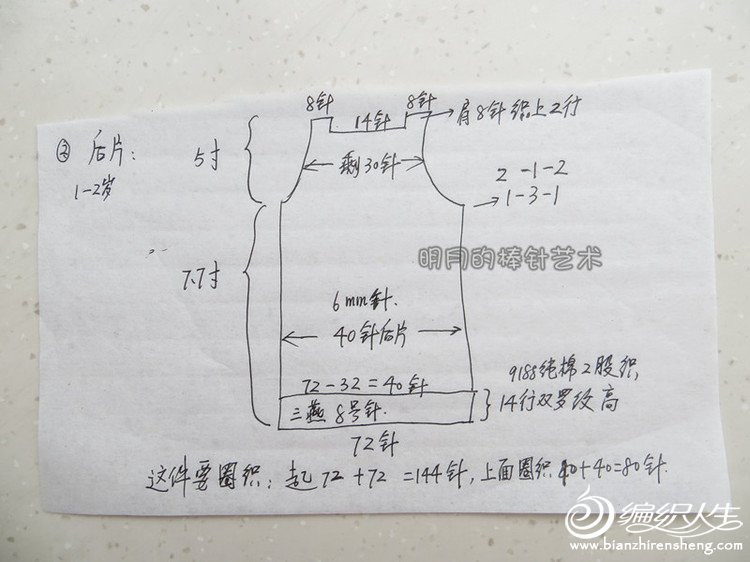 8针
14针
8针
肩8针织上2行
② 后片:
1-2岁
5寸
剩30针
2-1-2
1-3-1
明月的棒针艺术
7.7寸
6mm针.
40针后片
72-32=40针
三燕8号针.
72针
9185纯棉2股织,
14行双罗纹高
这件要圈织: 起72+72=144针,上面圈织40+40=80针.
编织人生
www.bianzhirensheng.com